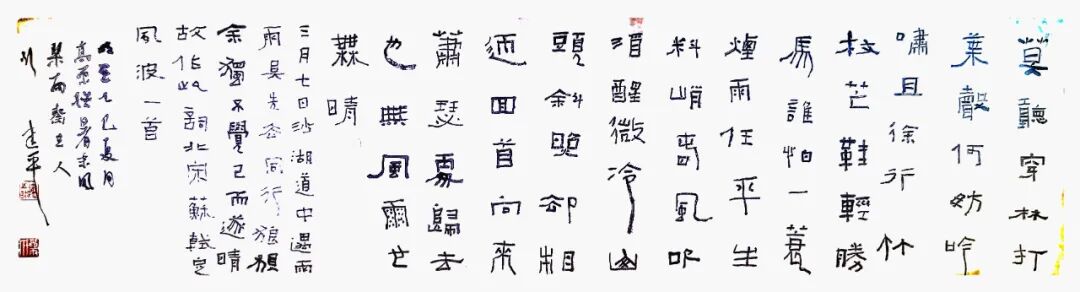 莫聽穿林打
葉聲何妨吟
嘯且徐行竹
杖芒鞋輕勝
馬誰怕一蓑
煙雨任平生
料峭春風吹
酒醒微冷山
頭斜晚却相
迎回首向來
蕭瑟處歸去
也無風雨也
無晴
三月七日沙湖道中遇雨
雨具先去同行狼狽
余獨不覺已而遂晴
故作此詞北宋蘇軾定
風波一首
乙巳夏月
齋主人
建平